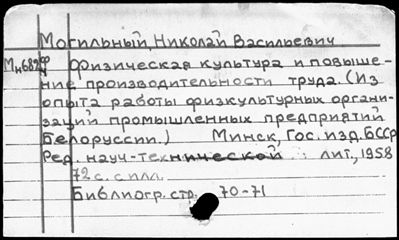 Могильный, Николай Васильевич
Мн682 Физическая культура и повыше-
ние производительности труда. (Из
опыта работы физкультурных органи-
заций промышленных предприятий
Белоруссии.) Минск, Гос. изд. БССР
Ред. науч-технической лит., 1958
72 с. с илл.
Библиогр. стр. 70-71